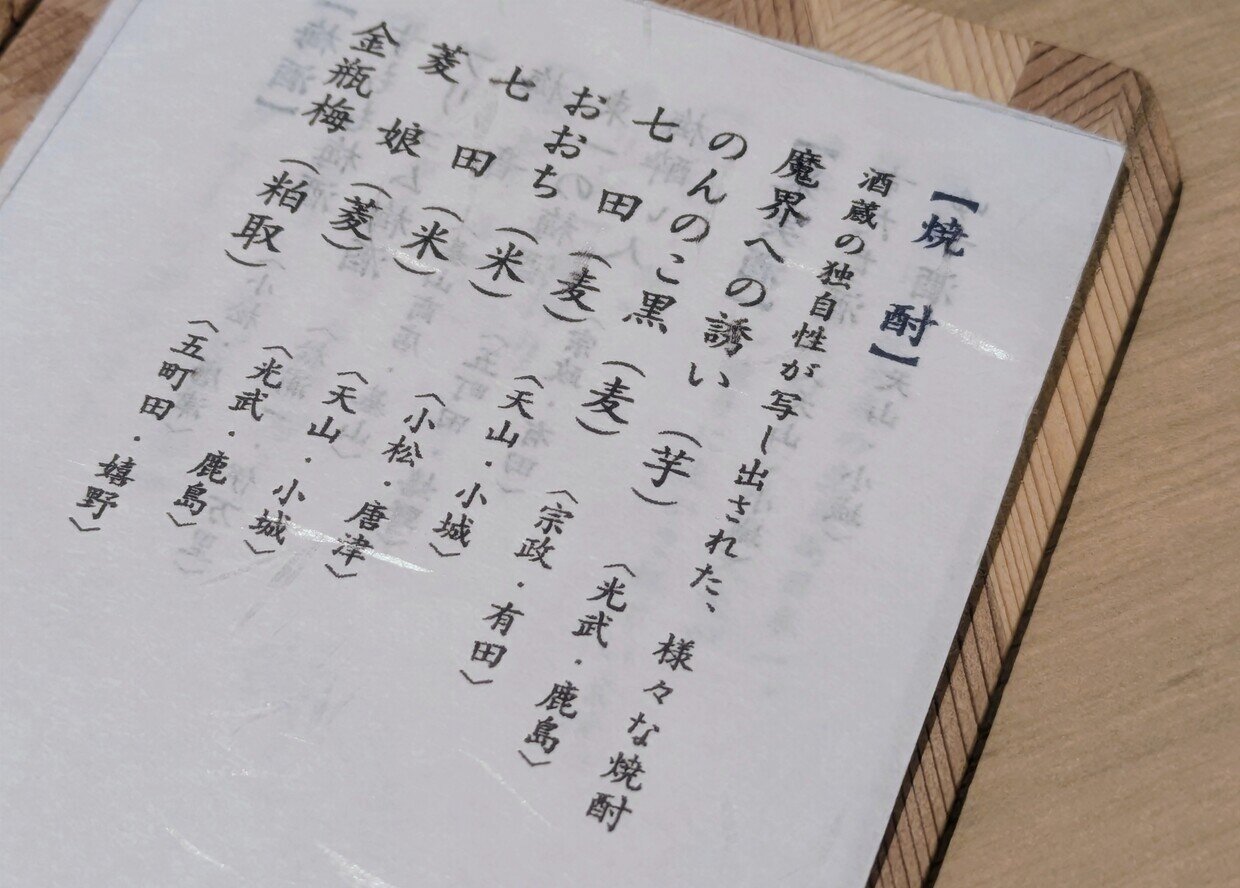 【焼 酎】
酒蔵の独自性が写し出された、様々な焼酎
魔界への誘い（芋）〈光武・鹿島〉
のんのこ黒（麦）〈宗政・有田〉
七 田（麦）〈天山・小城〉
おおち（米）〈小松・唐津〉
七 田（米）〈天山・小城〉
菱 娘（菱）〈光武・鹿島〉
金瓶梅（粕取）〈五町田・嬉野〉